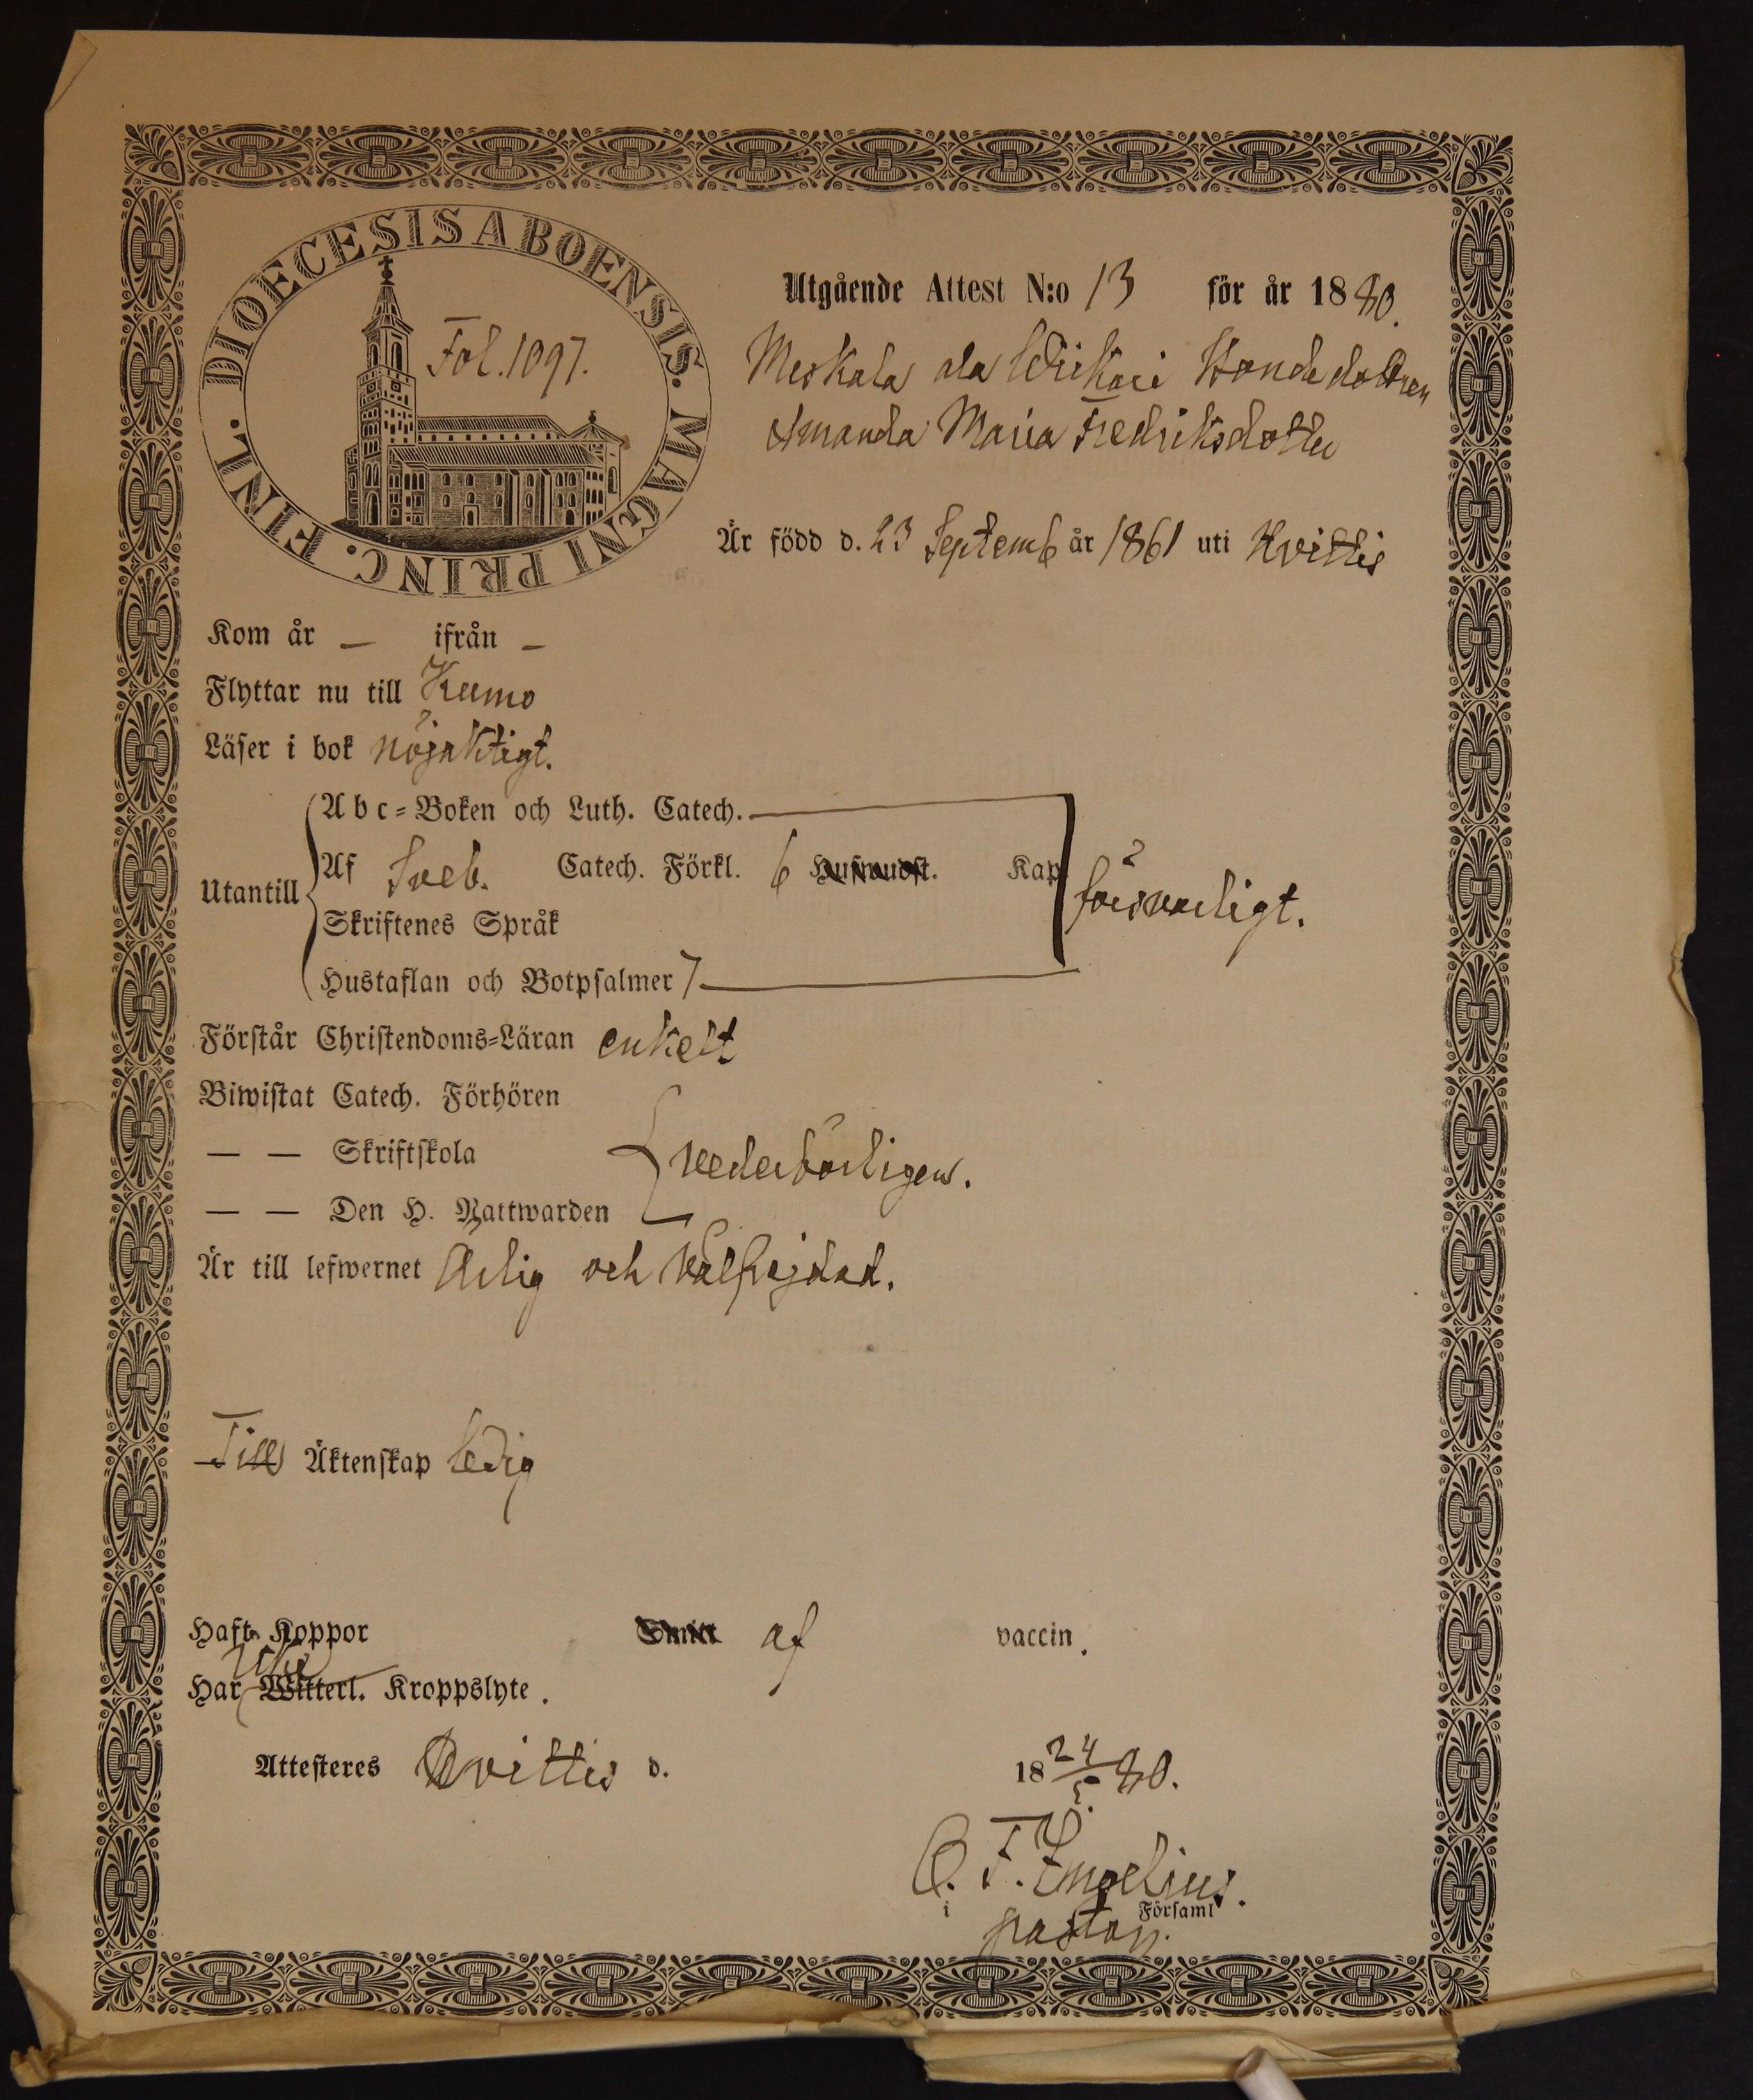 DIOECESIS ABOENSIS. MAGNI PRINC. FINL.
Fol. 1097.
Utgående Attest N:o 13 för år 1880.
Meskala ala Wikari Bondedottren
Amanda Maria Fredriksdotter
Är född d. 23 Septemb år 1861 uti Kvittis
Kom år — ifrån —
Flyttar nu till Kumo
Läser i bok nöjaktigt.
Abc-Boken och Luth. Catech.
Utantill Af Sveb. Catech. Förkl. 6 Hufwudst. Kap försvarligt.
Skriftenes Språk
Hustaflan och Botpsalmer 7
Förstår Christendoms-Läran enkelt
Biwistat Catech. Förhören
— — Skriftskola vederbörligen.
— — Den H. Nattwarden
Är till lefwernet Ärlig och välfrejdad.
Till Äktenskap ledig
Haft Koppor af vaccin.
Har Witterl. Kroppslyte.
Attesteres Kvittis d. 18 24/5 80.
i Församl
pastor.